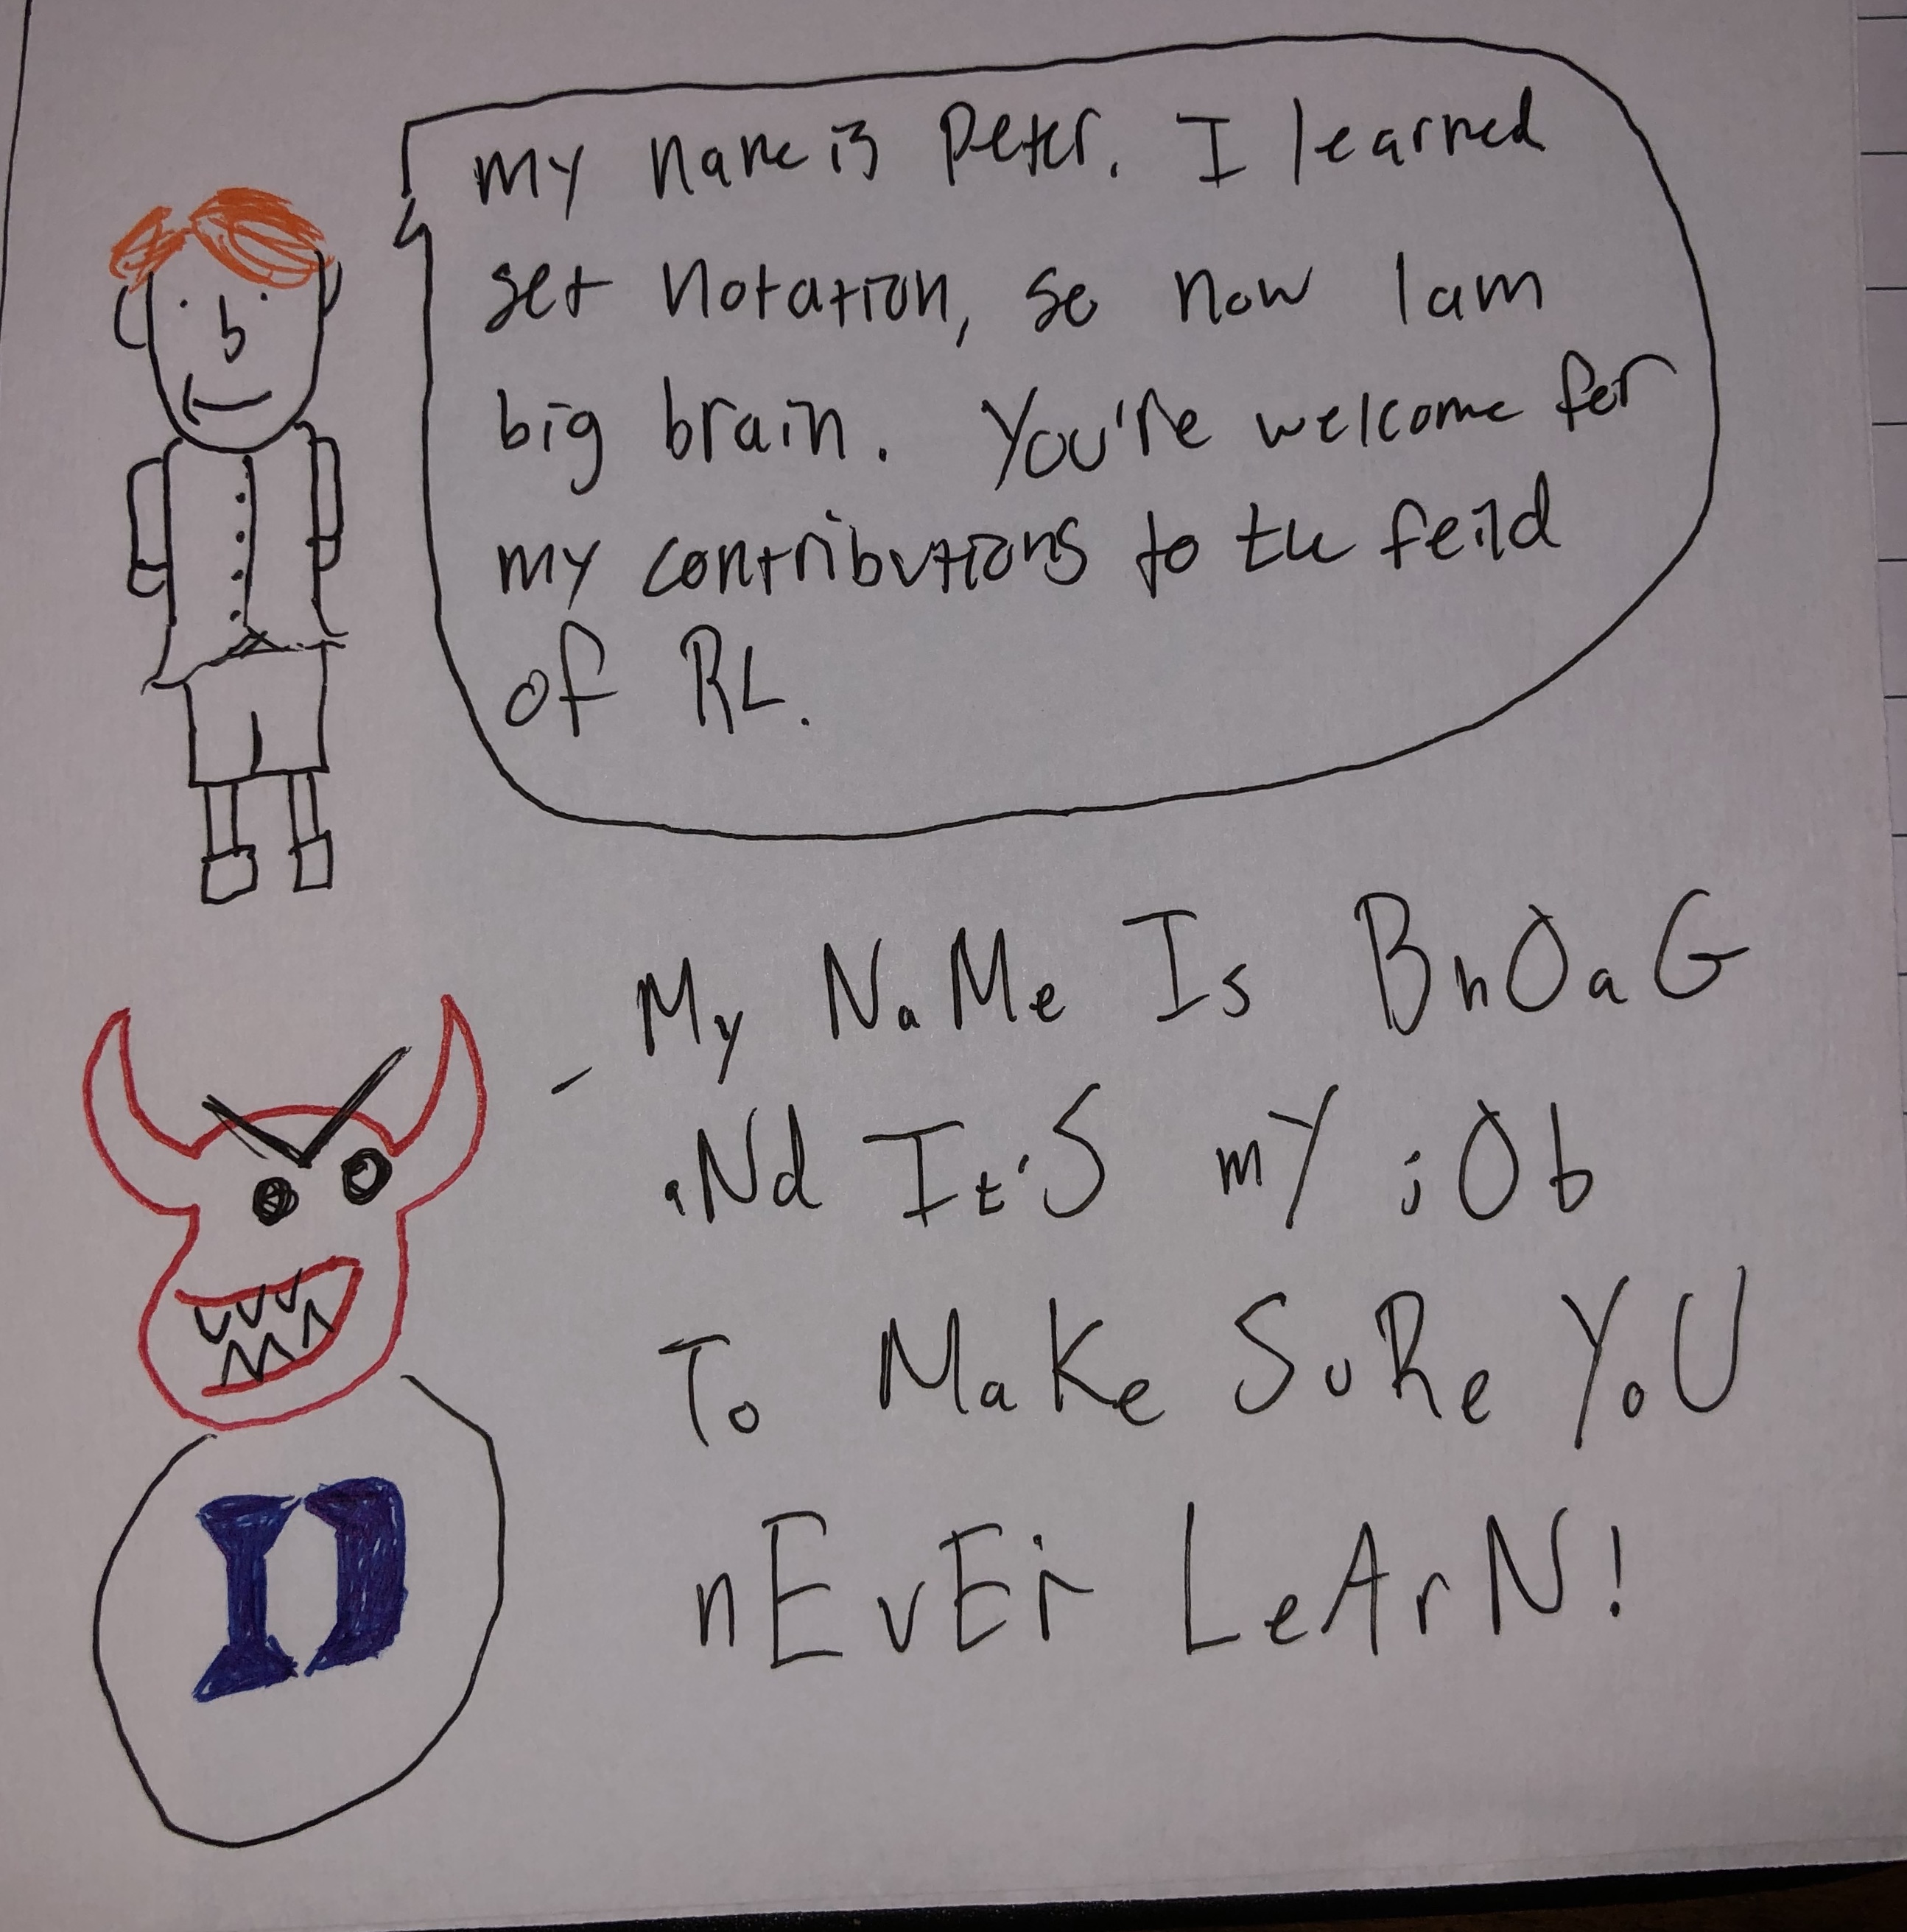 my name is Peter. I learned
set notation, so now I am
big brain. You're welcome for
my contributions to the feild
of RL.
My NaMe Is BnOaG
aNd It'S mY jOb
To MaKe SuRe YoU
nEvEr LeArN!
D